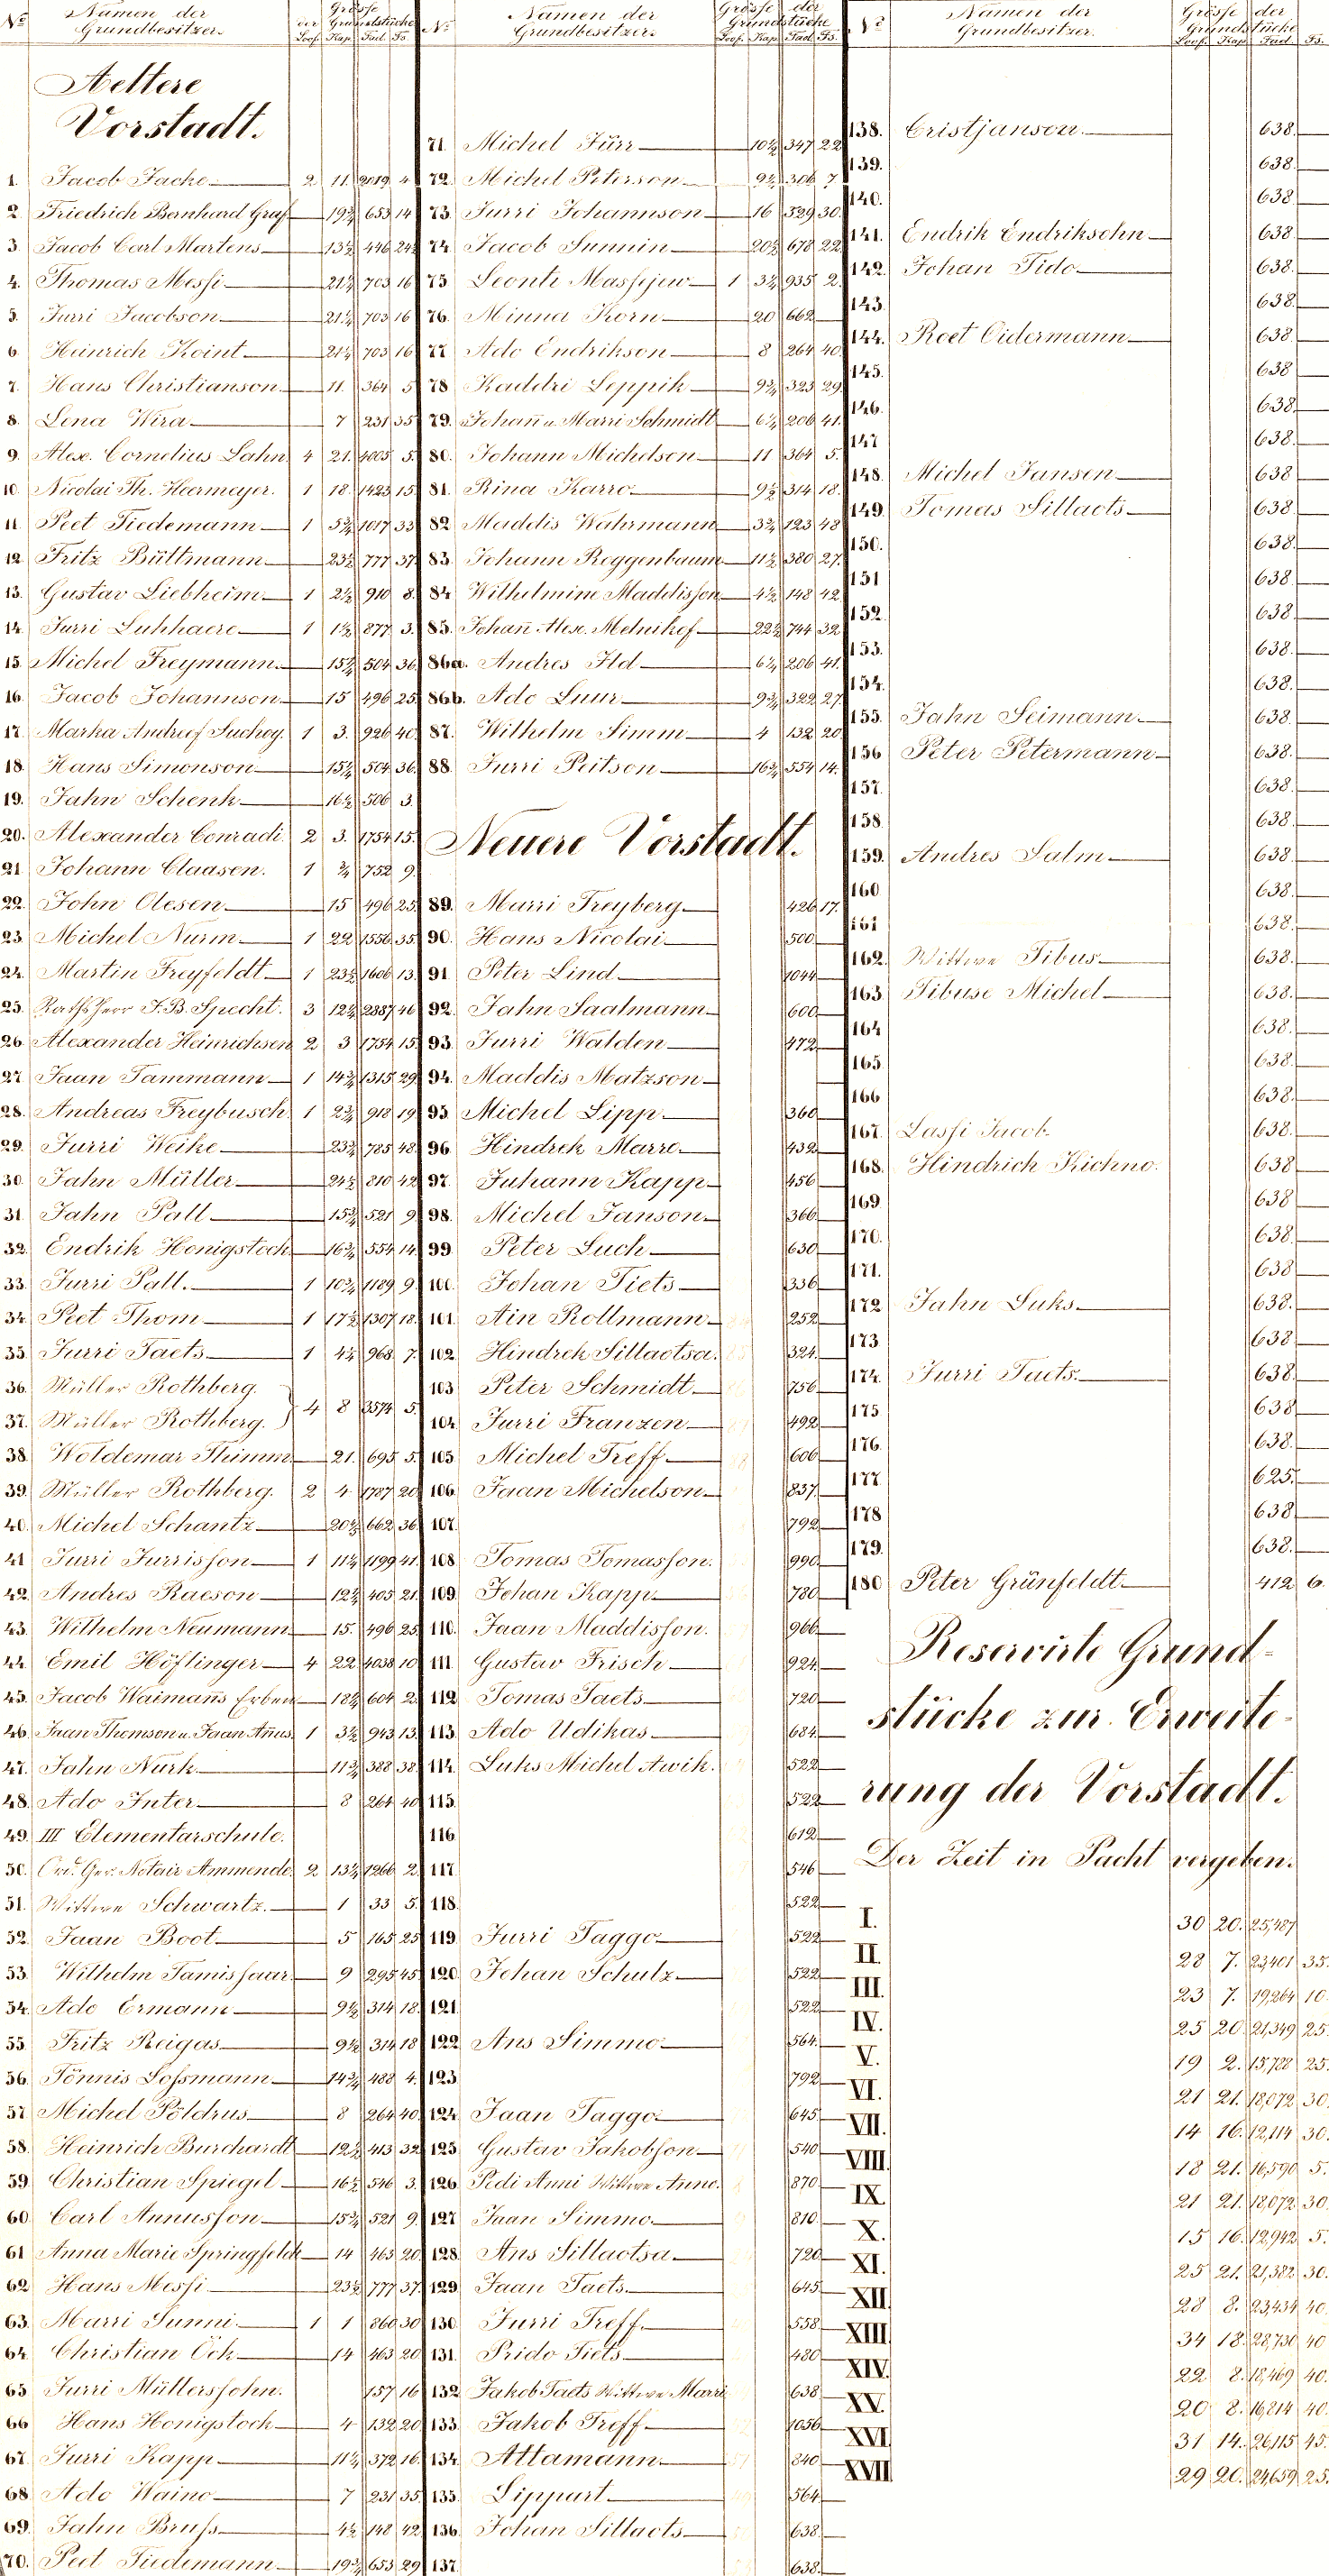 No Namen der Grundbesitzer. Grösse der Grundstücke Loof. Kap. Fad. Fs.
Aeltere
Vorstadt.
1. Jacob Jacke 2 11. 2019 4
2. Friedrich Bernhard Graf 19¾ 653 14
3. Jacob Carl Martens 13½ 446 24
4. Thomas Messi 21¼ 703 16
5. Jurri Jacobson 21¼ 703 16
6. Heinrich Koint 21¼ 703 16
7. Hans Christianson 11. 364 5
8. Lena Wira 7 231 35
9. Alex. Cornelius Lahn 4 21. 4005 5.
10. Nicolai Th. Heermeyer. 1 18. 1423 15
11. Peet Tiedemann 1 5¾ 1017 33
12. Fritz Büttmann 23½ 777 37
13. Gustav Liebheim 1 2½ 910 8.
14. Jurri Luhhaere 1 1½ 877 3.
15. Michel Freymann 15¼ 504 36.
16. Jacob Johannson 15 496 25.
17. Marka Andreef Suchoy. 1 3. 926 40
18. Hans Simonson 15¼ 504 36.
19. Jahn Schenk 16½ 506 3.
20. Alexander Conradi. 2 3. 1754 15.
21. Johann Claasen. 1 ¾ 752 9.
22. John Olesen 15 496 25.
23. Michel Nurm 1 22 1556 35
24. Martin Freyfeldt 1 23½ 1606 13.
25. Rathsherr J. B. Specht. 3 12¼ 2887 46
26. Alexander Heinrichsen 2 3 1754 15.
27. Jaan Tammann 1 14¾ 1315 29
28. Andreas Freybusch. 1 2¾ 918 19
29. Jurri Weike 23¾ 785 48
30. Jahn Müller 24½ 810 42
31. Jahn Pall 15¾ 521 9
32. Endrik Honigstock 16¾ 554 14.
33. Jurri Pall. 1 10¾ 1189 9.
34. Peet Thom 1 17½ 1307 18.
35. Jurri Taets 1 4¼ 968 7.
36. Müller Rothberg.
37. Müller Rothberg. } 4 8 3574 5.
38. Woldemar Thimm 21. 695 5.
39. Müller Rothberg. 2 4 1787 20
40. Michel Schantz 20 662 36
41. Jurri Jurrisson 1 11¼ 1199 41.
42. Andres Raeson 12¼ 405 21.
43. Wilhelm Neumann 15. 496 25
44. Emil Höflinger 4 22 4038 10
45. Jacob Waimanns Erben 18¼ 604 2.
46. Jaan Thomson u. Jaan Annus 1 3½ 943 13.
47. Jahn Nurk 11¾ 388 38.
48. Ado Inter 8 264 40
49. III Elementarschule.
50. Ord. Ger. Notair Ammende. 2 13½ 1266 2.
51. Wittwe Schwartz. 1 33 5.
52. Jaan Boot 5 165 25
53. Wilhelm Tamissaar. 9 295 45
54. Ado Ermann 9½ 314 18.
55. Fritz Reigas 9½ 314 18
56. Tönnis Lossmann 14¾ 488 4.
57. Michel Pöldrus 8 264 40
58. Heinrich Burchardt 12½ 413 32
59. Christian Spiegel 16½ 546 3.
60. Carl Annusson 15¾ 521 9.
61. Anna Marie Springfeldt 14 463 20
62. Hans Messi 23½ 777 37.
63. Marri Sunni 1 1 860 30
64. Christian Öck 14 463 20
65. Jurri Müllerssohn. 157 16
66. Hans Honigstock 4 132 20
67. Jurri Kapp 11¼ 372 16.
68. Ado Waino 7 231 35
69. Jahn Bruss 4½ 148 42
70. Peet Tiedemann 19¾ 653 29
No Namen der Grundbesitzer. Grösse der Grundstücke Loof. Kap. Fad. Fs.
71. Michel Jürr 10½ 347 22
72. Michel Peterson 9¼ 306 7
73. Jurri Johannson 16 529 30.
74. Jacob Sunnin 20½ 678 22
75. Leonti Massijew 1 3¼ 935 2.
76. Minna Korn 20 662
77. Ado Endrikson 8 264 40
78. Kaddri Leppik 9¾ 323 29
79. Johann u. Marri Schmidt 6¼ 206 41.
80. Johann Michelson 11 364 5.
81. Rina Karro 9½ 314 18.
82. Maddis Wahrmann 3¾ 123 48
83. Johann Roggenbaum 11½ 380 27.
84. Wilhelmine Maddisson 4½ 148 42
85. Johann Alex. Melnikof 22½ 744 32
86a. Andres Ild 6¼ 206 41.
86b. Ado Luur 9¾ 322 27
87. Wilhelm Simm 4 132 20
88. Jurri Peitson 16¾ 554 14.
Neuere Vorstadt.
89. Marri Freyberg 426 17.
90. Hans Nicolai 500
91. Peter Lind 1044
92. Jahn Saalmann 600
93. Jurri Walden 472
94. Maddis Matzson
95. Michel Lipp 360
96. Hindrek Marre 432
97. Juhann Kapp 456
98. Michel Janson 366
99. Peter Luch 630
100. Johan Tiets 336
101. Ain Rollmann 252
102. Hindrek Sillaotsa. 324.
103. Peter Schmidt 756
104. Jurri Franzen 492
105. Michel Treff 606
106. Jaan Michelson 837.
107. 792
108. Tomas Tomasson. 990
109. Johan Kapp 780
110. Jaan Maddisson. 966
111. Gustav Frisch 924
112. Tomas Taets 720
113. Ado Udikas 684
114. Luks Michel Awik. 522
115. 522
116. 612
117. 546
118. 522
119. Jurri Taggo 522
120. Johan Schulz 522
121. 522
122. Ans Simmo 564.
123. 792
124. Jaan Taggo 645
125. Gustav Jakobson 540
126. Pedi Anni Wittwe Anno. 870
127. Jaan Simmo 810
128. Ans Sillaotsa 720
129. Jaan Taets 645
130. Jurri Treff 558
131. Prido Tiets 480
132. Jakob Taets Wittwe Marri 638
133. Jakob Treff 1056
134. Allamann 840
135. Lippart 564
136. Johan Sillaots 638
137. 638.
No Namen der Grundbesitzer. Grösse der Grundstücke Loof. Kap. Fad. Fs.
138. Cristjanson 638.
139. 638
140. 638
141. Endrik Endriksohn 638
142. Johan Tido 638.
143. 638
144. Roet Oidermann 638
145. 638
146. 638
147 638
148. Michel Jansen 638
149. Tomas Sillaots 638
150. 638.
151 638
152. 638
153. 638
154. 638.
155. Jahn Seimann 638
156 Peter Petermann 638.
157. 638
158. 638
159. Andres Salm 638
160 638.
161 638
162. Wittwe Tibus 638.
163. Tibuse Michel 638.
164 638.
165. 638.
166 638.
167. Lassi Jacob. 638.
168. Hindrich Kichno. 638
169 638
170. 638.
171. 638
172. Jahn Luks 638.
173 638
174. Jurri Taets. 638
175 638
176. 638.
177. 625.
178 638
179. 638.
180 Peter Grünfeldt 412 6.
Reservirte Grund-
stücke zur Erweite-
rung der Vorstadt.
Der Zeit in Pacht vergeben.
I. 30 20. 25,487
II. 28 7. 23,401 35.
III. 23 7. 19,264 10.
IV. 25 20. 21,349 25.
V. 19 2. 15,788 25.
VI. 21 21. 18,072 30.
VII. 14 16. 12,114 30.
VIII. 18 21. 16,590 5.
IX. 21 21. 18,072 30.
X. 15 16. 12,942 5.
XI. 25 21. 21,382 30.
XII. 28 8. 23,434 40.
XIII. 34 18. 28,730 40
XIV. 22 8. 18,469 40.
XV. 20 8. 16,814 40.
XVI. 31 14. 26,115 45.
XVII 29 20. 24,659 25.